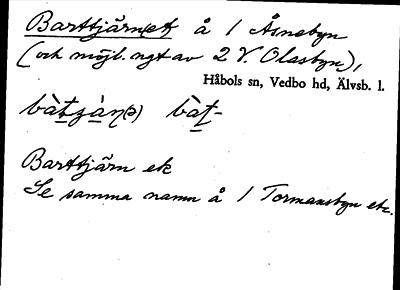 Barttjärn(et) å 1 Åsnebyn
(och möjl. ngt av 2 V. Olasbyn),
Håbols sn, Vedbo hd, Älvsb. l.
bàtzàn(ə) bàt-
Barttjärn etc
Se samma namn å 1 Tormansbyn etc.